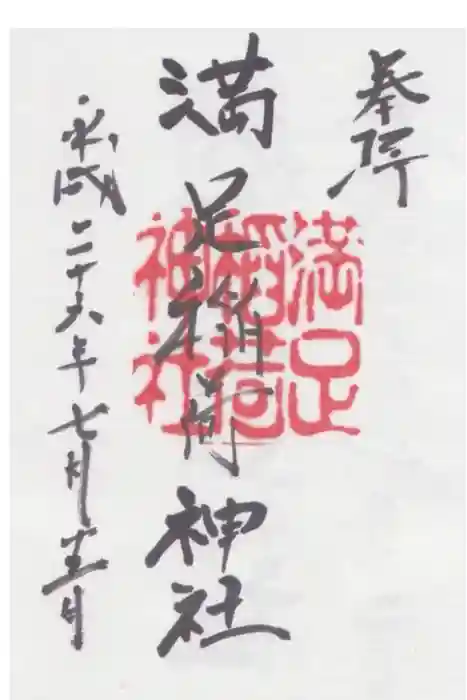 奉拝
満足稲荷神社
満足稲荷神社
平成二十六年七月十三日